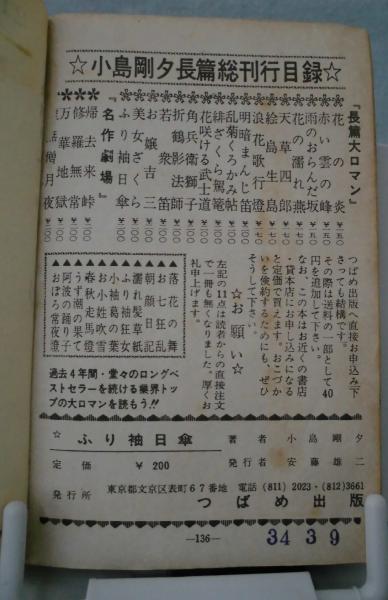 ☆小島剛夕長篇総刊行目録☆
『長篇大ロマン』
花の炎
赤い雲の峰
雨のおらんだ坂
花の濡れ燕
天草四郎
絵島生島
浪花歌行燈
明暗まんじ笛
乱菊くろかみ帖
緋ざくら駕篭
花咲ける武士道
角兵衛獅子
折鶴影法師
若衆笛
お嬢吉三
美女ざくら
ふり袖日傘
『名作劇場』
帰去来峠
修羅無常
万華地獄
つばめ出版へ直接お申込み下
さっても結構です。
その際は送料の一部として40
円を追加して下さい。
なお、この本はお近くの書店
・貸本店にお申し込みになる
と定価で買えます。おこづか
いを倹約するためにも、ぜひ
そうして下さい。
☆お願い☆
左記の11点は読者からの直接注文
で一冊も無くなりました。厚くお
礼申上げます。
落花の舞
お七狂乱
朝顔日記
濡れ髪草紙
ふり袖狂女
小袖葛葉
お小姓吹雪
春秋走馬燈
うず潮の果て
阿波の踊り子
おぼろ常夜燈
過去4年間・堂々のロングベ
ストセラーを続ける業界トッ
プの大ロマンを読もう!!
☆ ふり袖日傘
定価 ¥200
発行所
著者 小島剛夕
発行者 安藤雄二
東京都文京区表町67番地 電話(811)2023・(812)3661
つばめ出版
—136—
3439